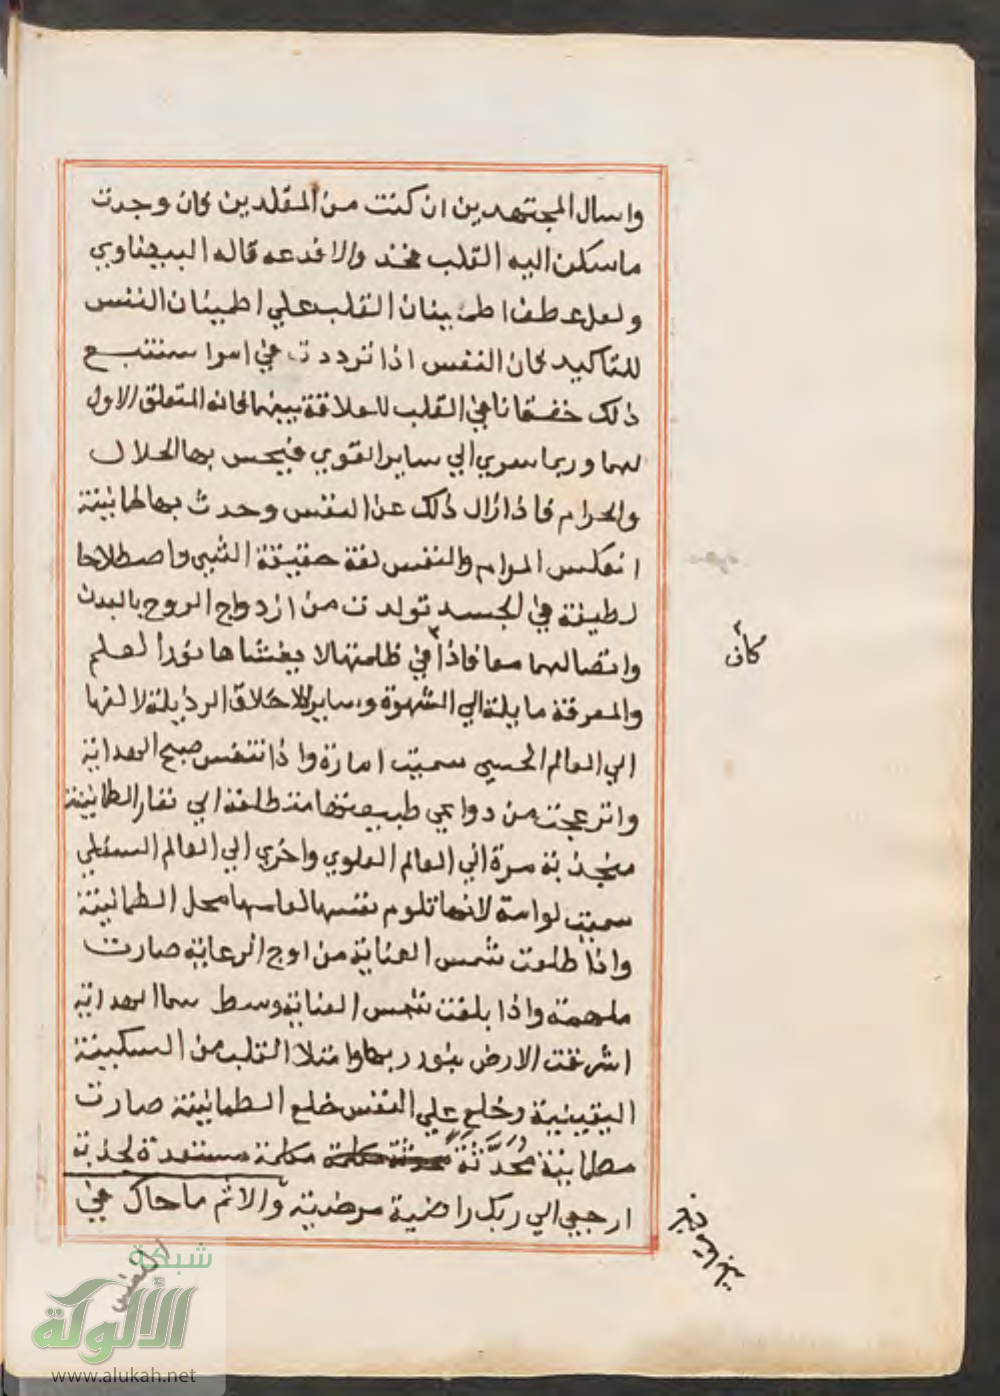 واسال المجتهدين ان كنت من المقلدين فان وجدت
ما سكن اليه القلب فخذ والا فدعه قاله البيضاوي
ولعل عطف اطميينان القلب علي اطمينان النفس
للتاكيد فان النفس اذا ترددت في امر استتبع
ذلك خفقانا في القلب للعلاقة بينهما فانه المتعلق الاول
لهما وربما سري الي ساير القوي فيحس بها الحلال
والحرام فاذا زال ذلك عن النفس وحدث بها طمانينة
انعكس المرام والنفس لغة حقيقة الشي واصطلاحا
لطيفة في الجسد تولدت من ازدواج الروح بالبدن
واتصالهما معا فاذا في ظلمتها لا يغشاها نور العلم
والمعرفة مايلة الي الشهوة وساير الاخلاق الرذيلة لالفها
الي العالم الحسي سميت امارة واذا تنفس صبح الهداية
وانزعجت من دواعي طبيعتها متطلعة الي نقار الطمانينة
منجذبة مرة الي العالم العلوي واخري الي العالم السفلي
سميت لوامة لانها تلوم نفسها لعلمها محل الطمانينة
واذا طلعت شمس العناية من اوج الرعاية صارت
ملهمة واذا بلغت شمس العناية وسط سما الهداية
اشرقت الارض بنور ربها وامتلا القلب من السكينة
اليقينية وخلع علي النفس خلع الطمانينة صارت
مطماينة مُحَدَّثَةً مكلمة مستعدة لجذبة
ارجعي الي ربك راضية مرضية والاثم ما حاك في
كان
النفس
شبكة
الألوكة
www.alukah.net